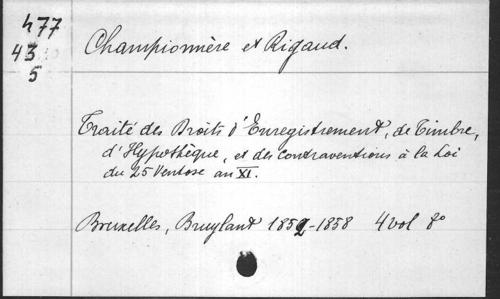 477
43
5
Championnière et Rigaud.
Traité des Droits d'Enregistrement, de Timbre,
d'Hypothèque, et des contraventions à la Loi
du 25 Ventose an XI.
Bruxelles, Bruylant 1852-1858 4 vol 8°